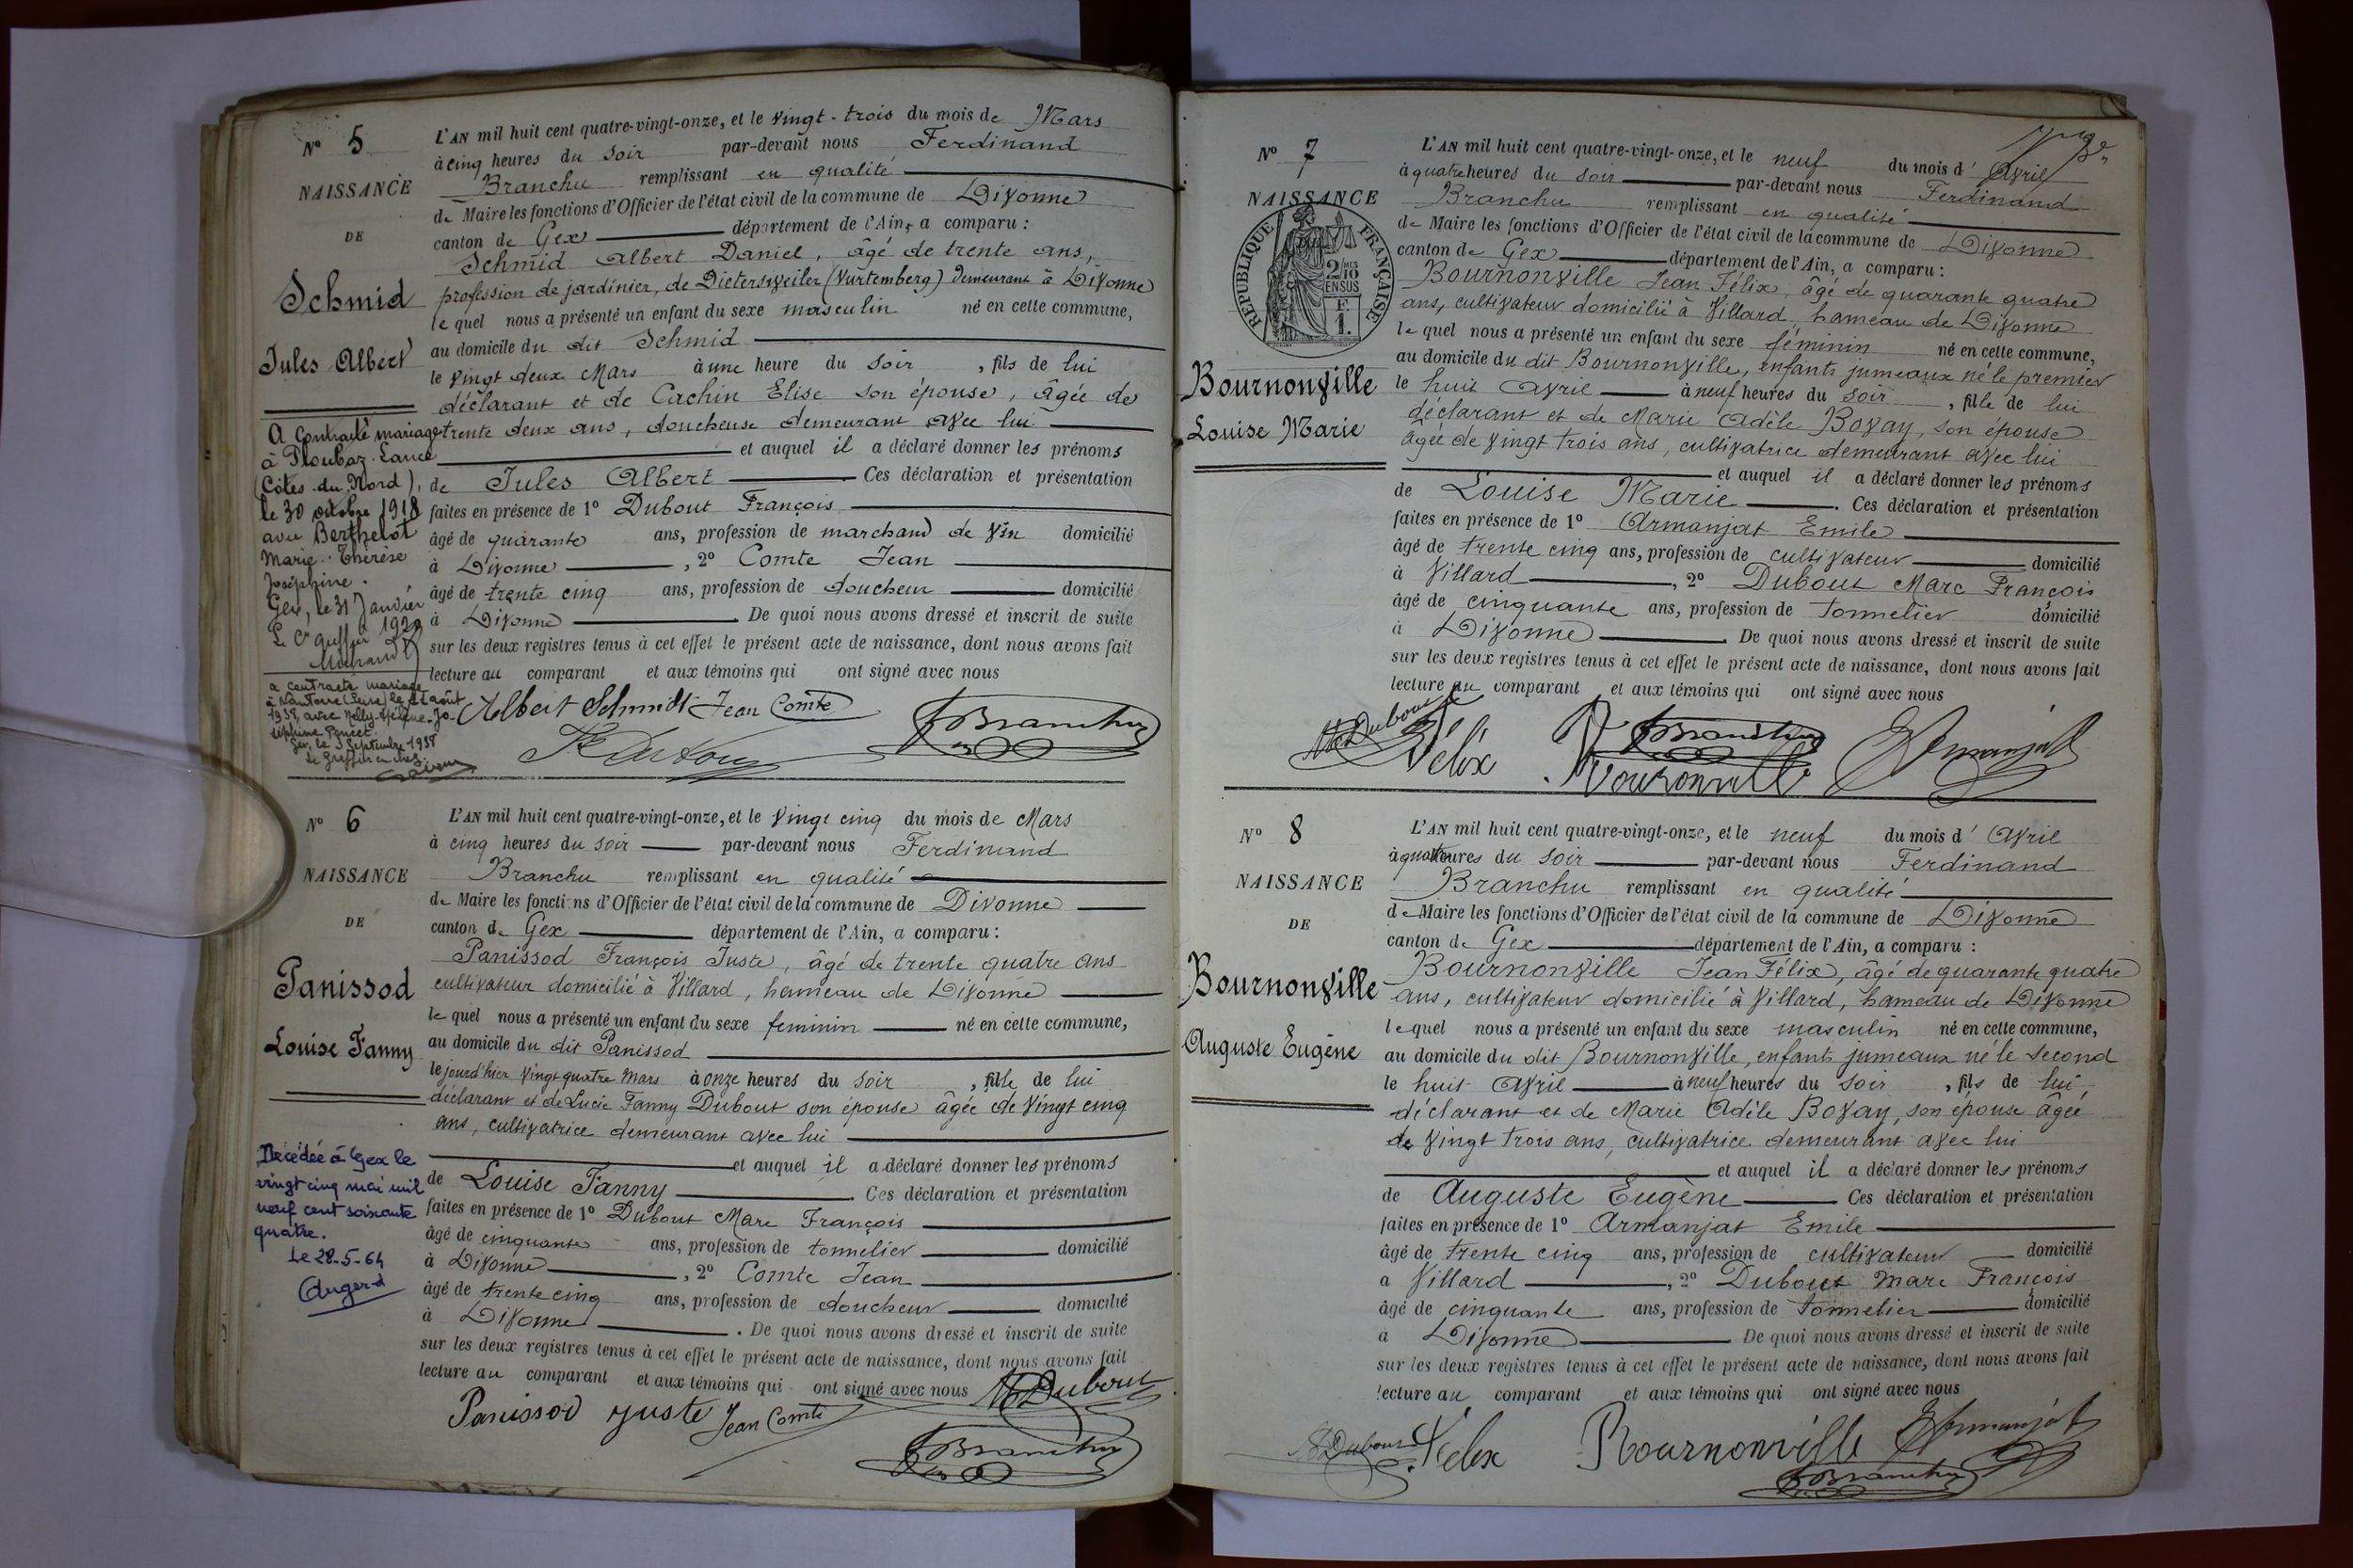 N° 5
NAISSANCE
DE
Schmid
Jules Albert
A contracté mariage
à Ploubaz-Lance
(Côtes-du-Nord),
le 30 octobre 1918
avec Berthelot
Marie-Thérèse
Joséphine.
Gex, le 31 Janvier
1920
Le Cis greffier
a contracté mariage
à Nanterre (Seine) le 21 août
1937, avec Nelly-Hélène-Jo-
séphine Poncet.
Gex, le 3 Septembre 1938
Le greffier en chef.
L'AN mil huit cent quatre-vingt-onze, et le vingt-trois du mois de Mars
à cinq heures du soir par-devant nous Ferdinand
Branchu remplissant en qualité
de Maire les fonctions d'Officier de l'état civil de la commune de Divonne
canton de Gex département de l'Ain, a comparu :
Schmid Albert Daniel, âgé de trente ans,
profession de jardinier, de Dietersweiler (Vurtemberg) demeurant à Divonne
le quel nous a présenté un enfant du sexe masculin né en cette commune,
au domicile du dit Schmid
le vingt deux Mars à une heure du soir, fils de lui
déclarant et de Cachin Elise son épouse, âgée de
trente deux ans, doucheuse demeurant avec lui
et auquel il a déclaré donner les prénoms
de Jules Albert Ces déclaration et présentation
faites en présence de 1° Dubout François
âgé de quarante ans, profession de marchand de vin domicilié
à Divonne, 2° Comte Jean
âgé de trente cinq ans, profession de doucheur domicilié
à Divonne. De quoi nous avons dressé et inscrit de suite
sur les deux registres tenus à cet effet le présent acte de naissance, dont nous avons fait
lecture au comparant et aux témoins qui ont signé avec nous
Albert Schmidt Jean Comte
FBranchu
N° 6
NAISSANCE
DE
Panissod
Louise Fanny
Décédée à Gex le
vingt cinq mai mil
neuf cent soixante
quatre.
Le 28-5-64
Augerd
L'AN mil huit cent quatre-vingt-onze, et le vingt cinq du mois de Mars
à cinq heures du soir par-devant nous Ferdinand
Branchu remplissant en qualité
de Maire les fonctions d'Officier de l'état civil de la commune de Divonne
canton de Gex département de l'Ain, a comparu :
Panissod François Juste, âgé de trente quatre ans
cultivateur domicilié à Villard, hameau de Divonne
le quel nous a présenté un enfant du sexe feminin né en cette commune,
au domicile du dit Panissod
le jourd'hier vingt quatre Mars à onze heures du soir, fille de lui
déclarant et de Lucie Fanny Dubout son épouse âgée de vingt cinq
ans, cultivatrice demeurant avec lui
et auquel il a déclaré donner les prénoms
de Louise Fanny. Ces déclaration et présentation
faites en présence de 1° Dubout Marc François
âgé de cinquante ans, profession de tonnelier domicilié
à Divonne, 2° Comte Jean
âgé de trente cinq ans, profession de doucheur domicilié
à Divonne. De quoi nous avons dressé et inscrit de suite
sur les deux registres tenus à cet effet le présent acte de naissance, dont nous avons fait
lecture au comparant et aux témoins qui ont signé avec nous MDubout
Panissod juste Jean Comte
FBranchu
N° 7
NAISSANCE
RÉPUBLIQUE FRANÇAISE
2/10
EN SUS
F.
1.
Bournonville
Louise Marie
L'AN mil huit cent quatre-vingt-onze, et le neuf du mois d'Avril
à quatre heures du soir par-devant nous Ferdinand
Branchu remplissant en qualité
de Maire les fonctions d'Officier de l'état civil de la commune de Divonne
canton de Gex département de l'Ain, a comparu :
Bournonville Jean Félix, âgé de quarante quatre
ans, cultivateur domicilié à Villard, hameau de Divonne
le quel nous a présenté un enfant du sexe féminin né en cette commune,
au domicile du dit Bournonville, enfants jumeaux né le premier
le huit Avril à neuf heures du soir, fille de lui
déclarant et de Marie Adèle Bovay, son épouse
âgée de vingt trois ans, cultivatrice demeurant avec lui
et auquel il a déclaré donner les prénoms
de Louise Marie. Ces déclaration et présentation
faites en présence de 1° Armanjat Emile
âgé de trente cinq ans, profession de cultivateur domicilié
à Villard, 2° Dubout Marc François
âgé de cinquante ans, profession de tonnelier domicilié
à Divonne. De quoi nous avons dressé et inscrit de suite
sur les deux registres tenus à cet effet le présent acte de naissance, dont nous avons fait
lecture au comparant et aux témoins qui ont signé avec nous
MDubout Félix Bournonville FBranchu EArmanjat
N° 8
NAISSANCE
DE
Bournonville
Auguste Eugène
L'AN mil huit cent quatre-vingt-onze, et le neuf du mois d'Avril
à quatre heures du soir par-devant nous Ferdinand
Branchu remplissant en qualité
de Maire les fonctions d'Officier de l'état civil de la commune de Divonne
canton de Gex département de l'Ain, a comparu :
Bournonville Jean Félix, âgé de quarante quatre
ans, cultivateur domicilié à Villard, hameau de Divonne
le quel nous a présenté un enfant du sexe masculin né en cette commune,
au domicile du dit Bournonville, enfants jumeaux né le second
le huit Avril à neuf heures du soir, fils de lui
déclarant et de Marie Adèle Bovay, son épouse âgée
de vingt trois ans, cultivatrice demeurant avec lui
et auquel il a déclaré donner les prénoms
de Auguste Eugène Ces déclaration et présentation
faites en présence de 1° Armanjat Emile
âgé de trente cinq ans, profession de cultivateur domicilié
a Villard, 2° Dubout Marc François
âgé de cinquante ans, profession de tonnelier domicilié
à Divonne De quoi nous avons dressé et inscrit de suite
sur les deux registres tenus à cet effet le présent acte de naissance, dont nous avons fait
lecture au comparant et aux témoins qui ont signé avec nous
MDubout Félix Bournonville EArmanjat
FBranchu